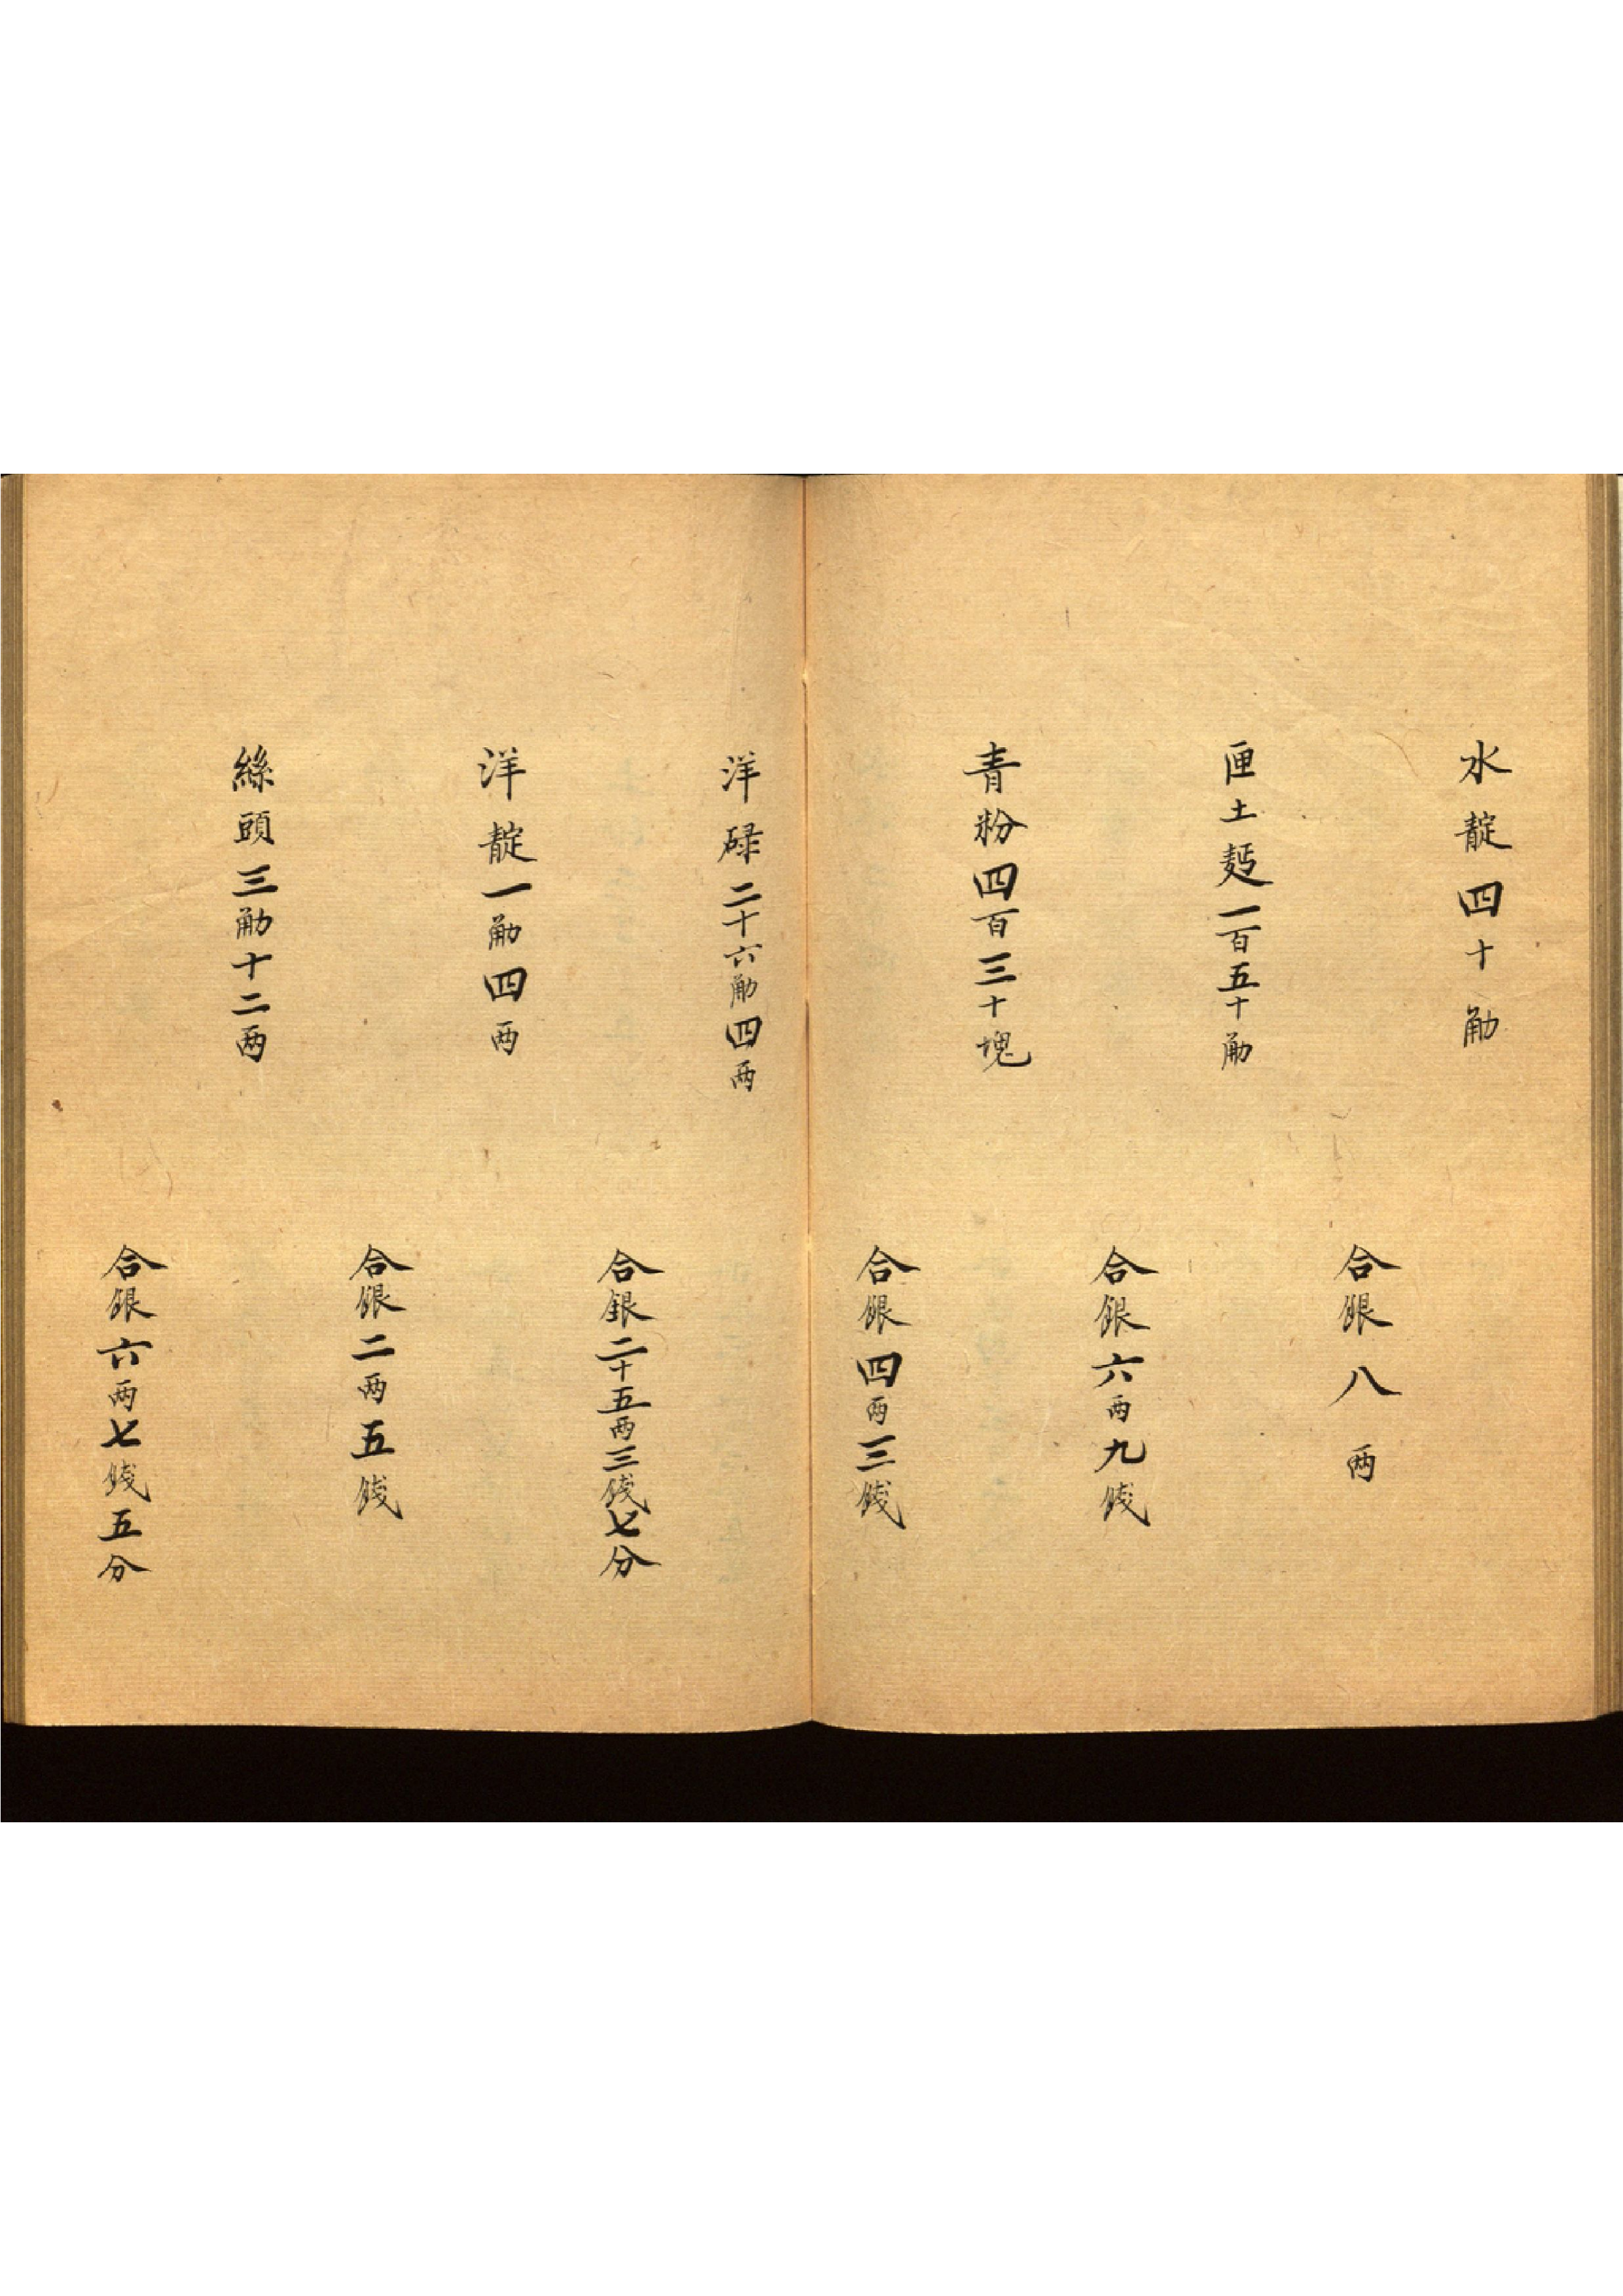 水靛四十觔
合銀八両
匣土麪一百五十觔
合銀六両九錢
青粉四百三十塊
合銀四両三錢
洋碌二十六觔四両
合銀二十五両三錢七分
洋靛一觔四両
合銀二両五錢
絲頭三觔十二両
合銀六両七錢五分